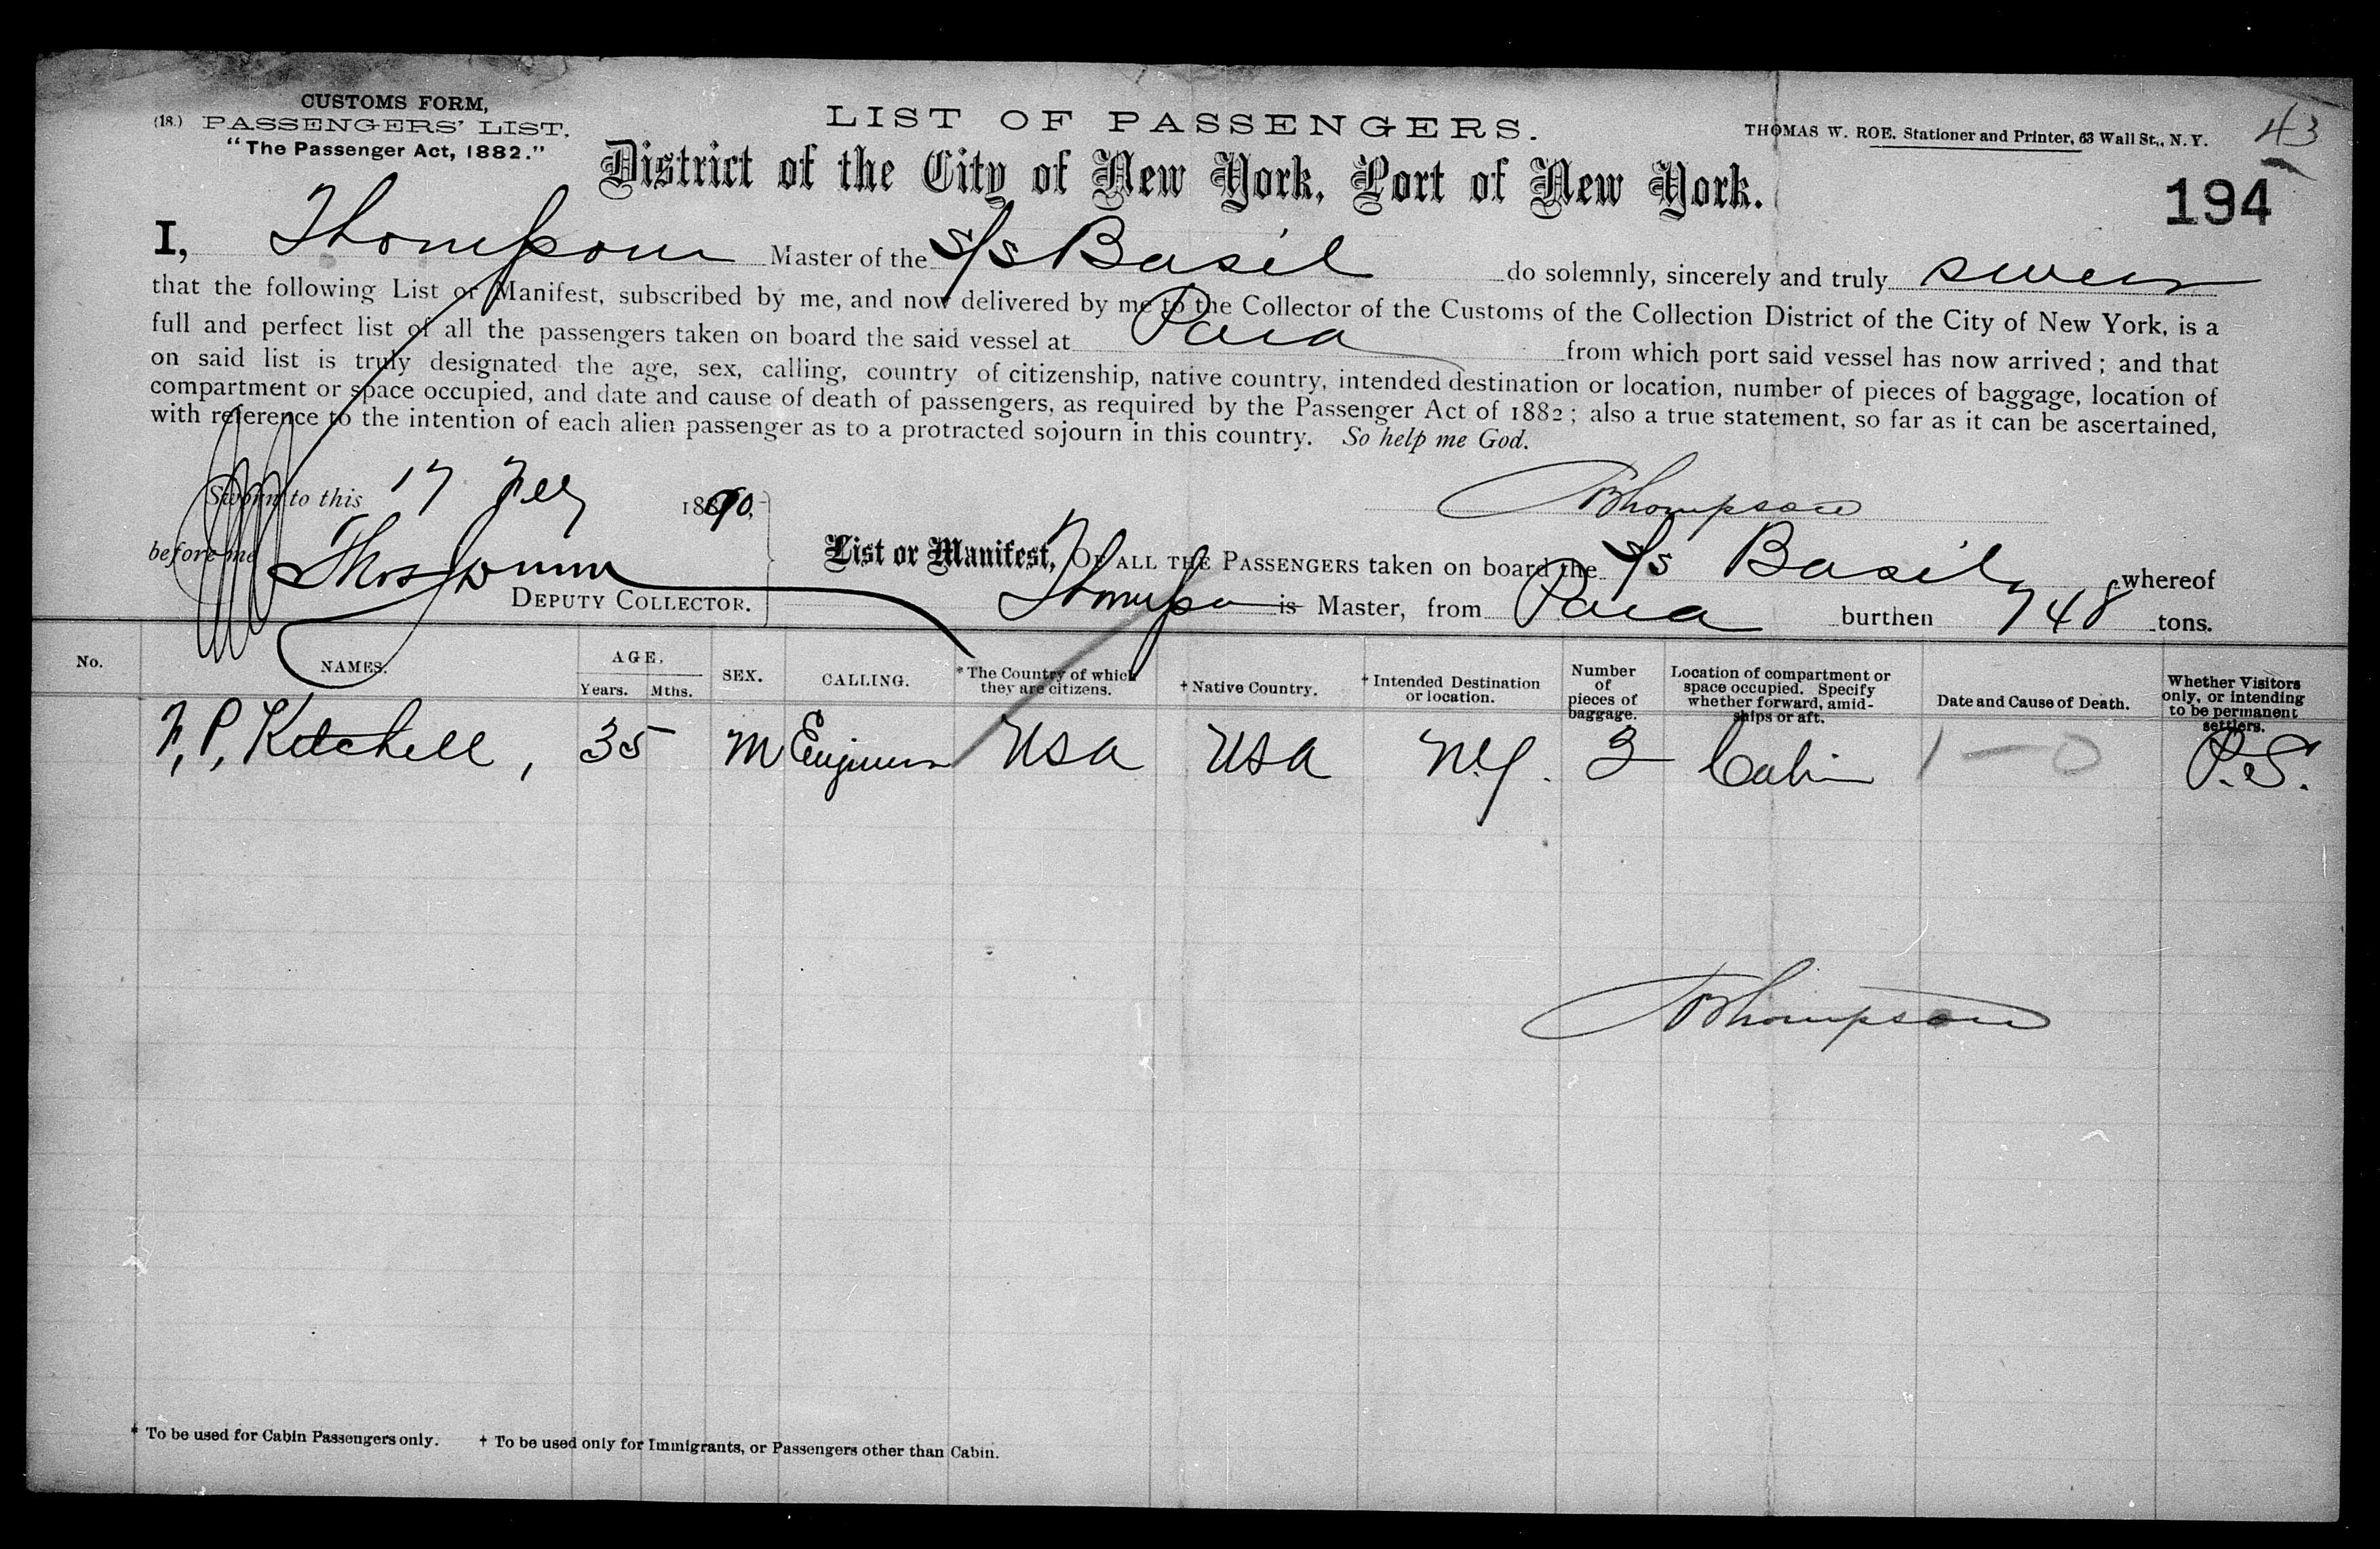 CUSTOMS FORM,
(18.) PASSENGERS' LIST.
"The Passenger Act, 1882."
LIST OF PASSENGERS.
THOMAS W. ROE. Stationer and Printer, 63 Wall St., N. Y.
43
District of the City of New York, Port of New York.
194
I, Thompson Master of the S/S Basil do solemnly, sincerely and truly swear
that the following List or Manifest, subscribed by me, and now delivered by me to the Collector of the Customs of the Collection District of the City of New York, is a
full and perfect list of all the passengers taken on board the said vessel at Para from which port said vessel has now arrived; and that
on said list is truly designated the age, sex, calling, country of citizenship, native country, intended destination or location, number of pieces of baggage, location of
compartment or space occupied, and date and cause of death of passengers, as required by the Passenger Act of 1882; also a true statement, so far as it can be ascertained,
with reference to the intention of each alien passenger as to a protracted sojourn in this country. So help me God.
Sworn to this 17 Feby 1890,
Thompson
before me
DEPUTY COLLECTOR.
List or Manifest, OF ALL THE PASSENGERS taken on board the S/S Basil whereof
Thompson is Master, from Para burthen 748 tons.
No.
NAMES.
AGE.
Years. Mths.
SEX.
CALLING.
* The Country of which
they are citizens.
† Native Country.
† Intended Destination
or location.
Number
of
pieces of
baggage.
Location of compartment or
space occupied. Specify
whether forward, amid-
ships or aft.
Date and Cause of Death.
Whether Visitors
only, or intending
to be permanent
settlers.
F. P. Kitchell, 35 M Engineer USA USA N.Y. 3 Cabin 1—0 P.S.
Thompson
* To be used for Cabin Passengers only. † To be used only for Immigrants, or Passengers other than Cabin.